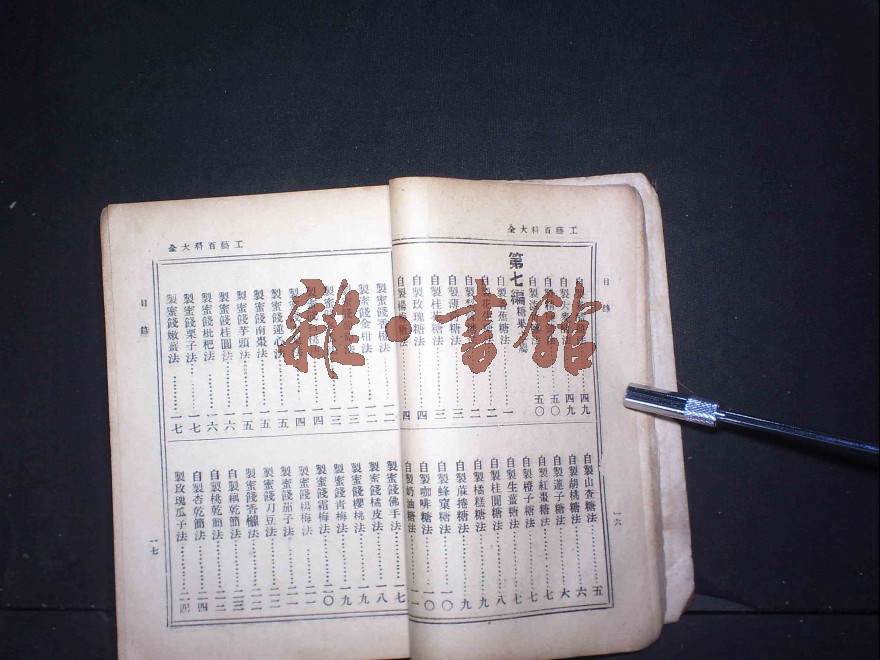 工藝百科大全
目錄
四九
四九
五〇
五〇
第七編 糖果
自製蕉糖法 一
自製花生糖 二
自製薄糖法 三
自製桂糖法 三
自製玫瑰糖法 四
四
自製山查糖法 五
自製胡桃糖法 六
自製蓮子糖法 六
自製紅棗糖法 七
自製橙子糖法 七
自製生薑糖法 七
自製桂圓糖法 八
自製橘糕糖法 九
自製蔴捲糖法 九
自製蜂窠糖法 一〇
自製咖啡糖法 一〇
自製奶油糖法 一一
一六
工藝百科大全
製蜜餞香櫞法 一二
製蜜餞金柑法 一二
製蜜餞 一三
製蜜 一三
一四
一四
製蜜餞蓮心法 一五
製蜜餞南棗法 一五
製蜜餞芋頭法 一五
製蜜餞桂圓法 一六
製蜜餞枇杷法 一六
製蜜餞栗子法 一七
製蜜餞嫩薑法 一七
製蜜餞佛手法 一七
製蜜餞橘皮法 一八
製蜜餞櫻桃法 一九
製蜜餞青梅法 一九
製蜜餞霜梅法 二〇
製蜜餞楊梅法 二一
製蜜餞茄子法 二一
製蜜餞刀豆法 二二
製蜜餞香櫞法 二二
自製藕乾簡法 二三
自製桃乾簡法 二三
自製杏乾簡法 二四
製玫瑰瓜子法 二四
目錄
一七
雜·書館